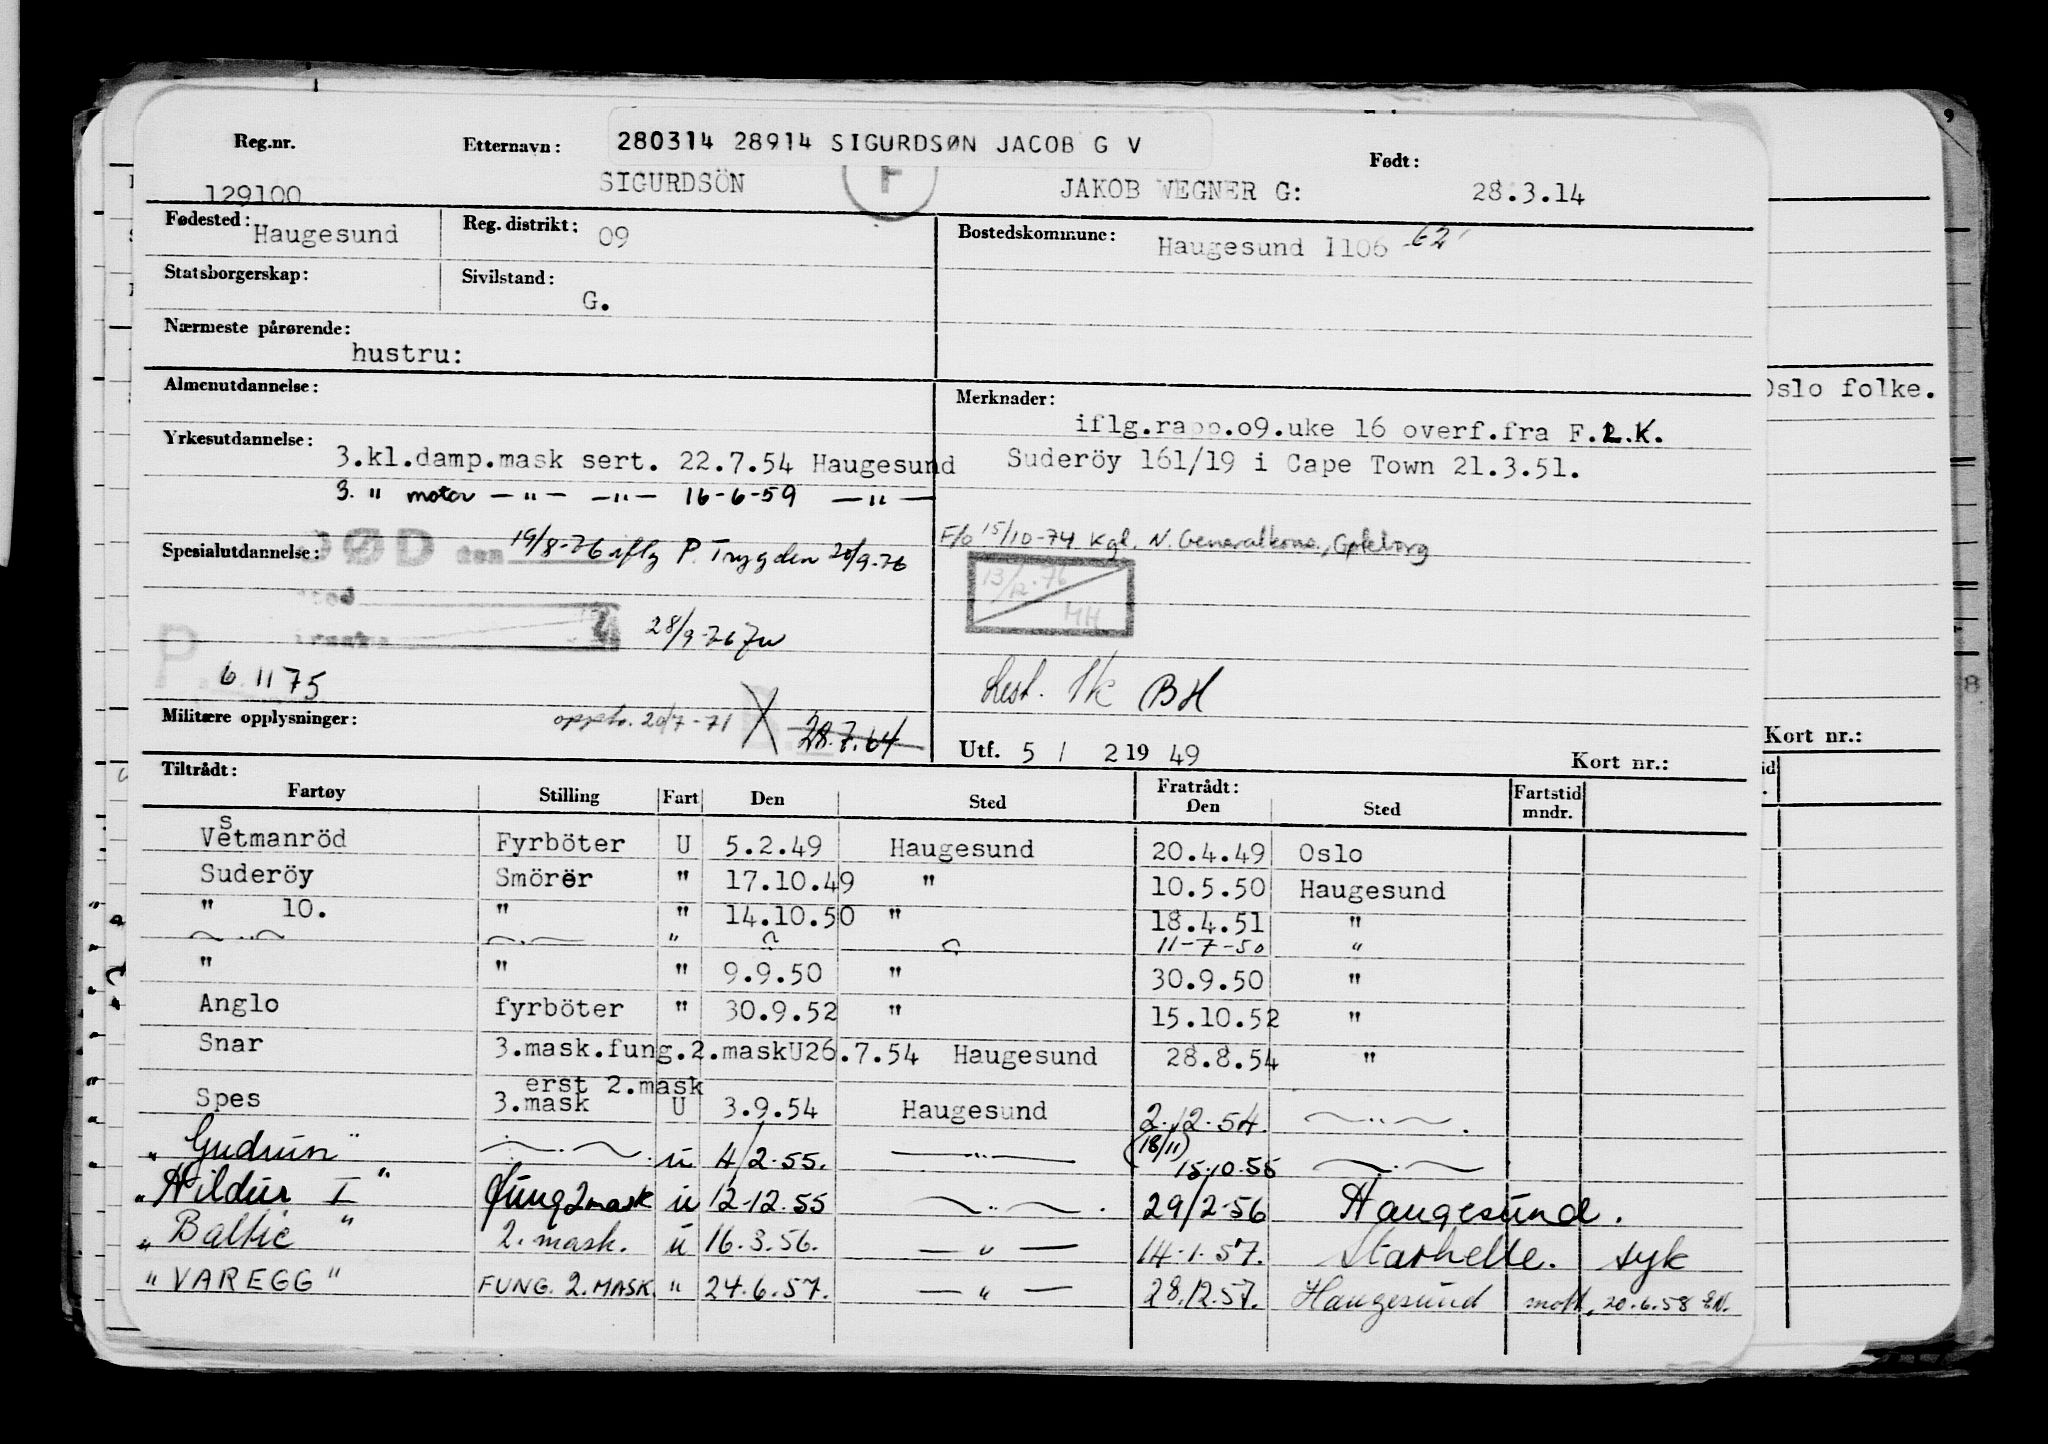 Reg.nr. Etternavn: 280314 28914 SIGURDSØN JACOB G V Født:
129100 SIGURDSÖN F JAKOB WEGNER G: 28.3.14
Fødested: Haugesund Reg. distrikt: 09 Bostedskommune: Haugesund 1106 62
Statsborgerskap: Sivilstand: G.
Nærmeste pårørende: hustru:
Oslo folke.
Almenutdannelse: Merknader:
iflg.rapp.o9.uke 16 overf.fra F.L.K.
Yrkesutdannelse: 3.kl.damp.mask sert. 22.7.54 Haugesund Suderöy 161/19 i Cape Town 21.3.51.
3. " motor — " — — " — 16-6-59 — " —
Spesialutdannelse: DØD den 19/8-76 iflg P. Trygden 20/9-76 F/o 15/10-74 Kgl. N. Generalkons., Gøteborg
13/12-76 HH
28/9-76
P 6 11 75 BH
Militære opplysninger: 20/7-71 28.7.64 Utf. 5 / 2 19 49 Kort nr.: Kort nr.:
Tiltrådt: Fratrådt:
Fartøy Stilling Fart Den Sted Den Sted Fartstid mndr.
Vestmanröd Fyrböter U 5.2.49 Haugesund 20.4.49 Oslo
Suderöy Smörer " 17.10.49 " 10.5.50 Haugesund
" 10. " " 14.10.50 " 18.4.51 "
" 11-7-50 "
" " " 9.9.50 " 30.9.50 "
Anglo fyrböter " 30.9.52 " 15.10.52 "
Snar 3.mask.fung.2.mask U 26.7.54 Haugesund 28.8.54 "
erst 2.mask
Spes 3.mask U 3.9.54 Haugesund 2.12.54. — " —
(18/11)
"Gudrun" — " — u 4/2-55. — " — 15.10.55 — " —
"Hildur I" fung 2 mask u 12-12.55 — " — 29/2-56 Haugesund.
"Baltic" 2. mask. u 16.3.56. — " — 14.1.57. Stathelle. syk
"VAREGG" FUNG. 2. MASK. " 24.6.57. — " — 28.12.57. Haugesund mott. 20.6.58 EN.